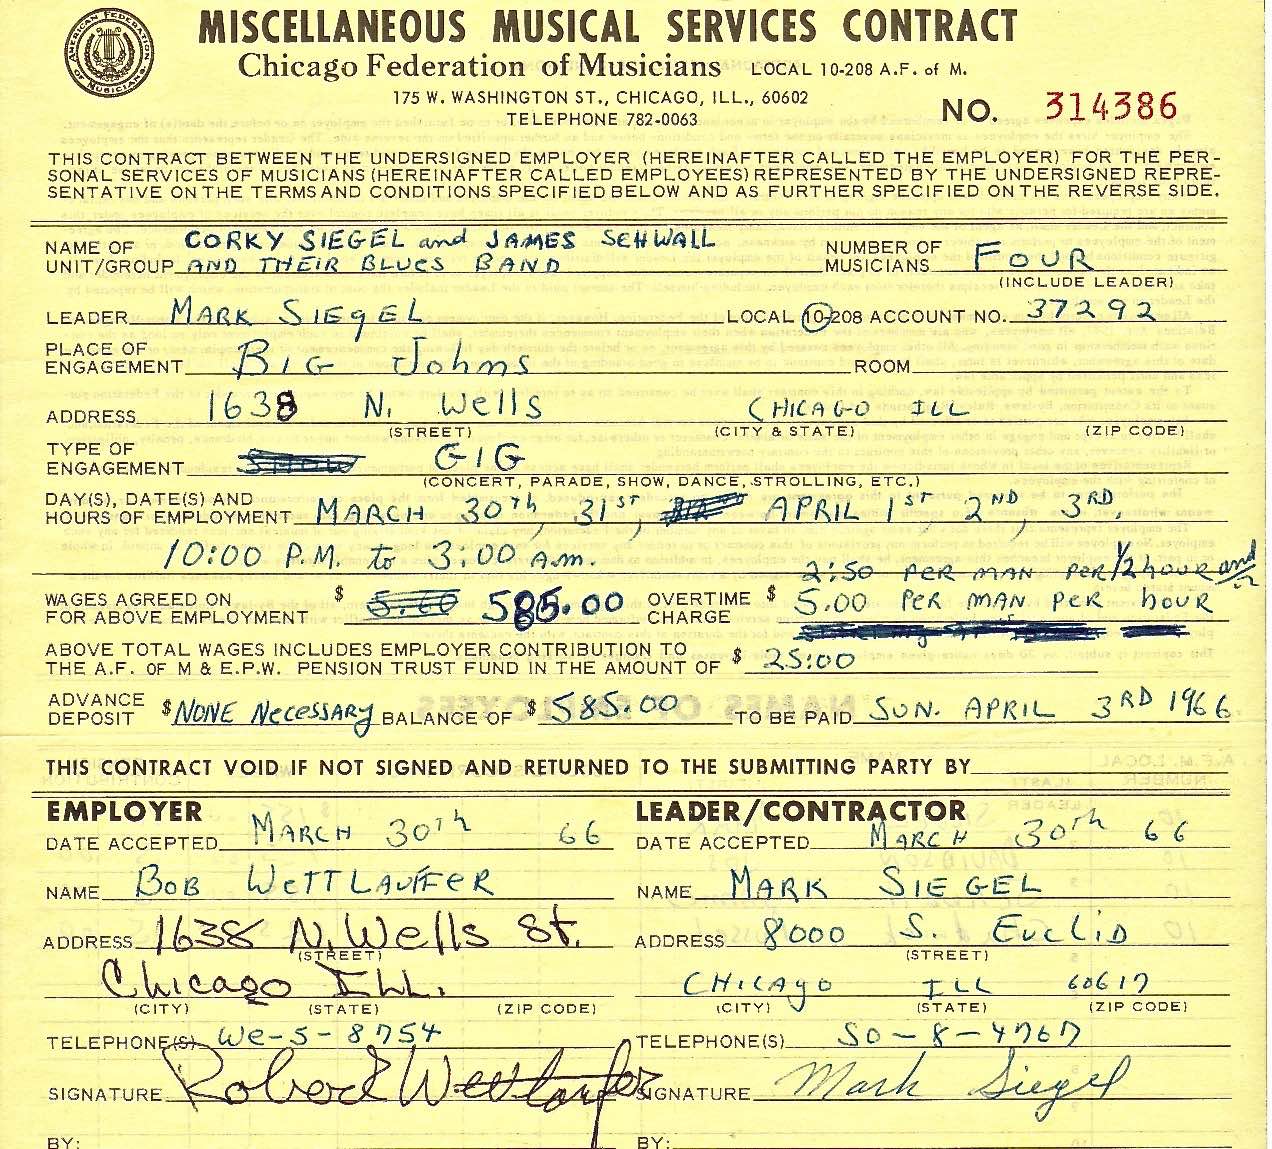 MISCELLANEOUS MUSICAL SERVICES CONTRACT
AMERICAN FEDERATION OF MUSICIANS
Chicago Federation of Musicians LOCAL 10-208 A.F. of M.
175 W. WASHINGTON ST., CHICAGO, ILL., 60602
TELEPHONE 782-0063
NO. 314386
THIS CONTRACT BETWEEN THE UNDERSIGNED EMPLOYER (HEREINAFTER CALLED THE EMPLOYER) FOR THE PER-
SONAL SERVICES OF MUSICIANS (HEREINAFTER CALLED EMPLOYEES) REPRESENTED BY THE UNDERSIGNED REPRE-
SENTATIVE ON THE TERMS AND CONDITIONS SPECIFIED BELOW AND AS FURTHER SPECIFIED ON THE REVERSE SIDE.
NAME OF UNIT/GROUP CORKY SIEGEL and JAMES SCHWALL
AND THEIR BLUES BAND
NUMBER OF MUSICIANS FOUR
(INCLUDE LEADER)
LEADER MARK SIEGEL LOCAL 10-208 ACCOUNT NO. 37292
PLACE OF ENGAGEMENT BIG JOHNS ROOM
ADDRESS 1638 N. Wells CHICAGO ILL
(STREET) (CITY & STATE) (ZIP CODE)
TYPE OF ENGAGEMENT SHOW GIG
(CONCERT, PARADE, SHOW, DANCE, STROLLING, ETC.)
DAY(S), DATE(S) AND
HOURS OF EMPLOYMENT MARCH 30th, 31ST, APRIL 1ST, 2ND, 3RD,
10:00 P.M. to 3:00 A.m.
WAGES AGREED ON
FOR ABOVE EMPLOYMENT $ 585.00
OVERTIME CHARGE $ 2:50 PER MAN PER 1/2 hour and
5.00 PER MAN PER hour
ABOVE TOTAL WAGES INCLUDES EMPLOYER CONTRIBUTION TO
THE A.F. OF M & E.P.W. PENSION TRUST FUND IN THE AMOUNT OF $ 25:00
ADVANCE DEPOSIT $ NONE NECESSARY BALANCE OF $ 585.00 TO BE PAID SUN. APRIL 3RD 1966
THIS CONTRACT VOID IF NOT SIGNED AND RETURNED TO THE SUBMITTING PARTY BY
EMPLOYER
DATE ACCEPTED MARCH 30th 66
NAME BOB WETTLAUFFER
ADDRESS 1638 N. Wells St.
(STREET)
Chicago ILL.
(CITY) (STATE) (ZIP CODE)
TELEPHONE(S) We-5-8754
SIGNATURE
BY:
LEADER/CONTRACTOR
DATE ACCEPTED MARCH 30th 66
NAME MARK SIEGEL
ADDRESS 8000 S. EUCLID
(STREET)
CHICAGO ILL 60617
(CITY) (STATE) (ZIP CODE)
TELEPHONE(S) SO-8-4767
SIGNATURE Mark Siegel
BY: